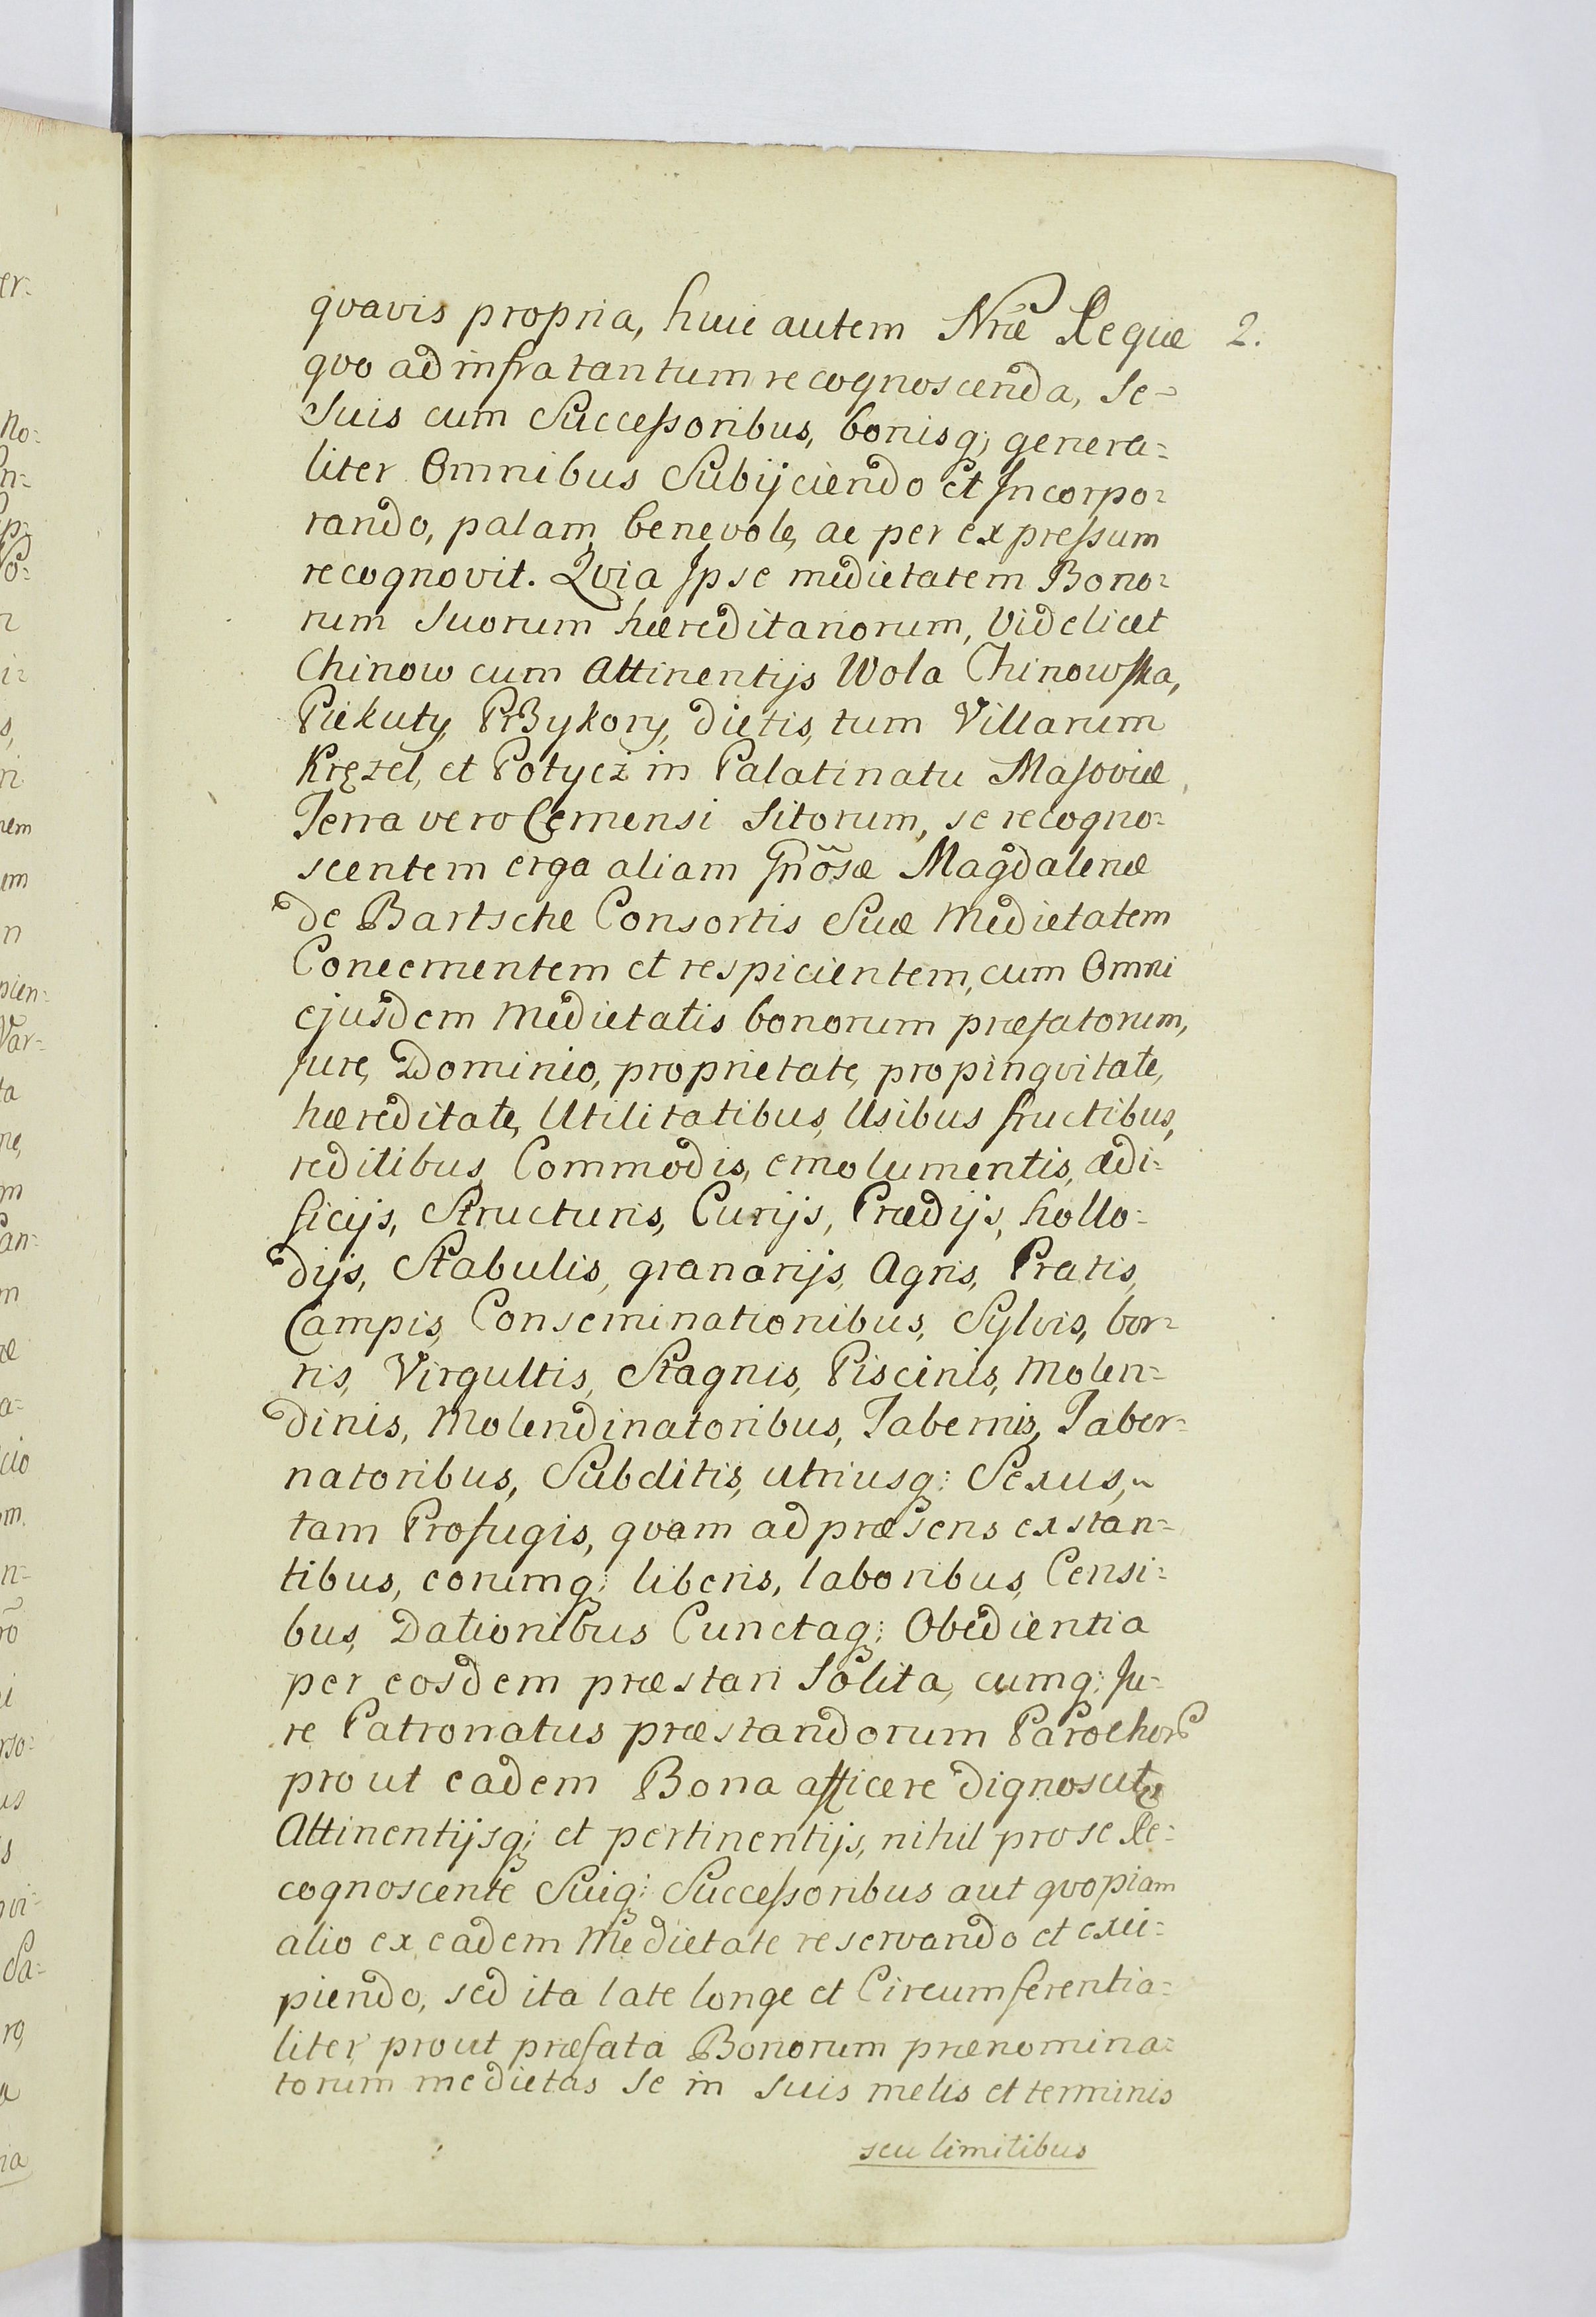 qvavis propria, huic autem Nræ Regiæ 2.
qvo ad infra tantum recognoscenda, Se=
Suis cum Successoribus, bonisq; genera=
liter Omnibus Subijciendo et Incorpo=
rando, palam, benevole, ac per expressum
recognovit. Qvia Ipse medietatem Bono=
rum Suorum hæreditariorum, Videlicet
Chinow cum Attinentijs Wola Chinowska,
Piekuty, PrZykory, dictis, tum Villarum
Kręzel, et Potycż in Palatinatu Masoviæ,
Terra vero Cernensi Sitorum, se recogno=
scentem erga aliam Gnõsæ Magdalenæ
de Bartsche Consortis Suæ Medietatem
Concernentem et respicientem, cum Omni
ejusdem Medietatis bonorum præfatorum,
Jure, Dominio, proprietate, propinqvitate,
hæreditate, Utilitatibus, Usibus fructibus,
reditibus, Commodis, emolumentis, ædi=
ficijs, Structuris, Curijs, Prædijs, hollo=
dijs, Stabulis, granarijs, Agris, Pratis,
Campis, Conseminationibus, Sylvis, bor=
ris, Virgultis, Stagnis, Piscinis, Molen=
dinis, Molendinatoribus, Tabernis, Taber=
natoribus, Subditis, utriusq; Sexus,
tam Profugis, qvam ad præsens exstan=
tibus, eorumq; liberis, laboribus, Censi=
bus, Dationibus Cunctaq; Obedientia
per eosdem præstari Solita, cumq; Ju=
re Patronatus præstandorum Parochor
prout eadem Bona afficere dignoscutr
Attinentijsq; et pertinentijs, nihil pro se Re=
cognoscente Suiq; Successoribus aut qvopiam
alio ex eadem Medietate reservando et exci=
piendo, sed ita late longe et Circumferentia=
liter, prout præfata Bonorum prænomina=
torum medietas Se in Suis metis et terminis
seu limitibus